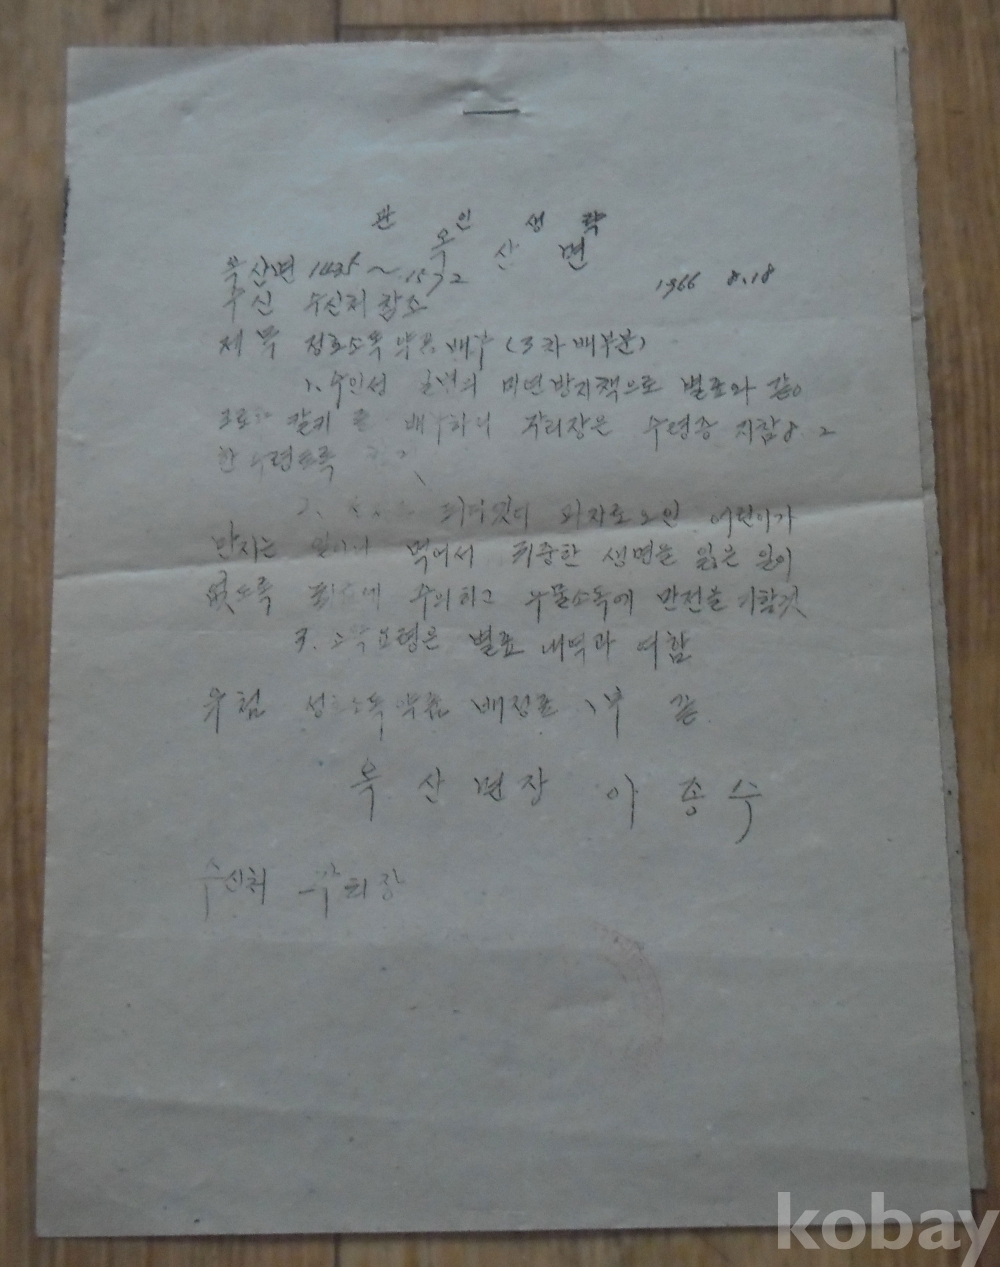 관 인 생 략
옥 산 면
옥산면 1435~1572 1966 8.18
수신 수신처 참조
제목 정호소독약품 배부 (3차 배부분)
1. 수인성 질병의 미연방지책으로 별표와 같이
크로르 칼키를 배부하니 각리장은 수령증 지참
한 수령토록
2. 어린이가
만지는 일이나 먹어서 귀중한 생명을 잃은 일이
없도록 주의하고 우물소독에 만전을 기할것
3. 소독요령은 별표 내역과 여함
유첨 정호소독약품 배정표 1부 끝
옥 산 면장 이 종 수
수신처 각리장
kobay